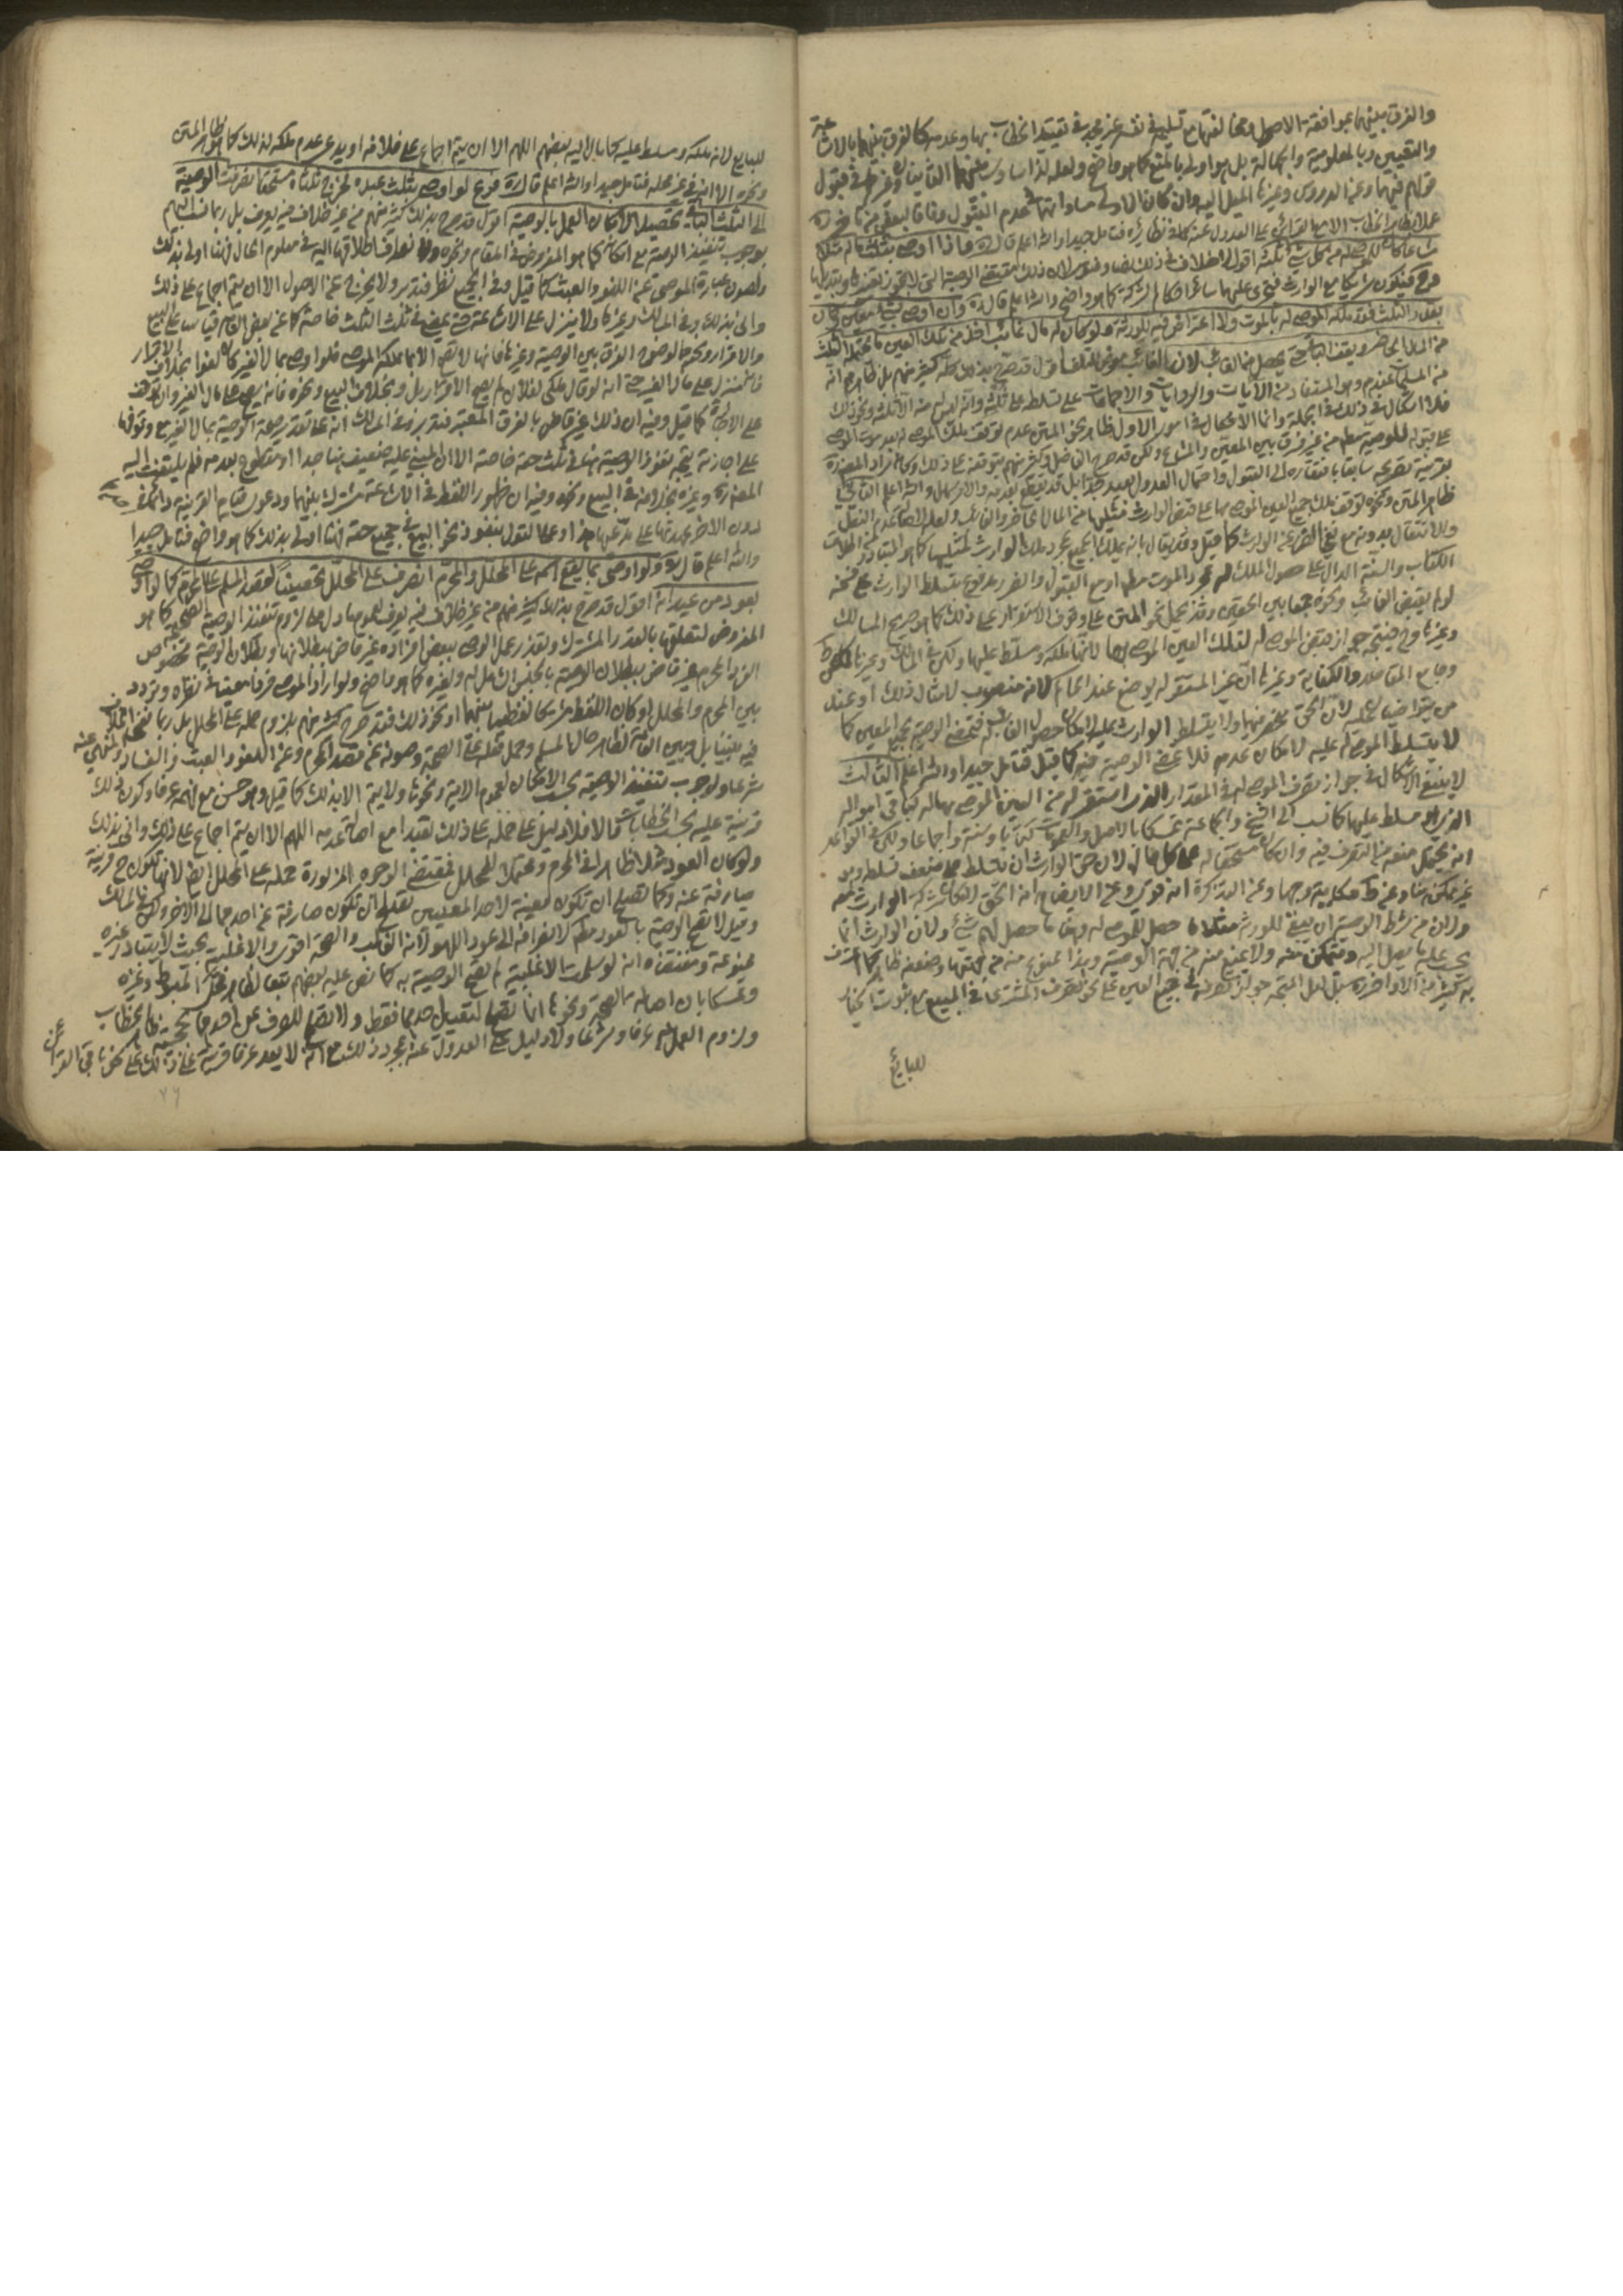 والفرق بينهما بموافقة الاصل ومخالفتها مع تسليمه في نفسه غير مجد في تقييد الخطاب بها وعدمه كالفرق بينهما بالاشاعة
والتعيين وبالمعلومية والجهالة بل هو اولى بالمنع كما هو واضح ولعله لذا ساوى بينهما الفاضلان وغيرهما في قبول
قولهم فيهما وعن الدروس وغيرها الميل اليه وان كان الاولى مساواتهما في عدم القبول وفاقا لبعض من تأخر
عملا بظاهر الخطاب الا مع القرائن على العدول عنه كما في نظائره فتامل جيدا والله اعلم قال ره فاذا اوصى بثلث ماله مثلا
مشاعا كان للموصى له من كل شيء ثلثه اقول لا خلاف في ذلك نصا وفتوى لان ذلك مقتضى الوصية التي لا يجوز تغييرها وتبديلها
وح فيكون شريكا مع الوارث فتجري عليها سائر احكام الشركة كما هو واضح والله اعلم قال ره وان اوصى بشيء معين وكان
بقدر الثلث فقد ملكه الموصى له بالموت ولا اعتراض فيه للورثة ولو كان له مال غائب اخذ من تلك العين ما يحتمله الثلث
من المال الحاضر ويقف الباقي حتى يحصل من الغائب لان الغائب معرض للتلف اقول قد صرح بذلك كله كثير منهم بل ظاهرهم انه
من المسلم عندهم وهو المستفاد من الآيات والروايات والاجماعات على تسلطه على ثلثه وانه ليس له من ماله الا ثلثه ونحو ذلك
فلا اشكال في ذلك في الجملة وانما الاشكال في امور الاول ظاهر نحو المتن عدم توقف ملك الموصى له بعد موت الموصي
على قبوله للوصية مطلقا من غير فرق بين المعين والمشاع ولكن قد صرح الفاضل وكثير منهم بتوقفه على ذلك وكانه مراد المصنف ره
بقرينة تصريحه سابقا بافتقاره الى القبول واحتمال العدول بعيد جدا بل قد يقطع بعدمه والامر سهل والله اعلم الثاني
ظاهر المتن ونحوه توقف تملك جميع العين الموصى بها على قبض الوارث مثليها من المال الحاضر والغائب ولعله لاصالة عدم النقل
والانتقال بدونه مع نفي الضرر عن الوارث كما قيل وقد يقال بانه يملك الجميع بمجرد ملك الوارث لمثليها كما هو المتبادر من اطلاق
الكتاب والسنة الدال على حصول الملك له بمجرد الموت مطلقا او مع القبول والضرر مدفوع بتسلط الوارث على فسخه
لو لم يقبض الغائب ونحوه جمعا بين الحقين وقد يحمل نحو المتن على وقوف الاستقرار على ذلك كما هو صريح المسالك
وغيرها وح فيتجه جواز قبض الموصى له لتلك العين الموصى بها لانها ملكه ومسلط عليها ولكن في المسالك وغيرها كالمبسوط
وجامع المقاصد والكفاية وغيرها ان غير المستقر له يوضع عند الحاكم لانه منصوب لامثال ذلك او عند
من يتراضيا عليه لان الحق منحصر فيهما ولا يتسلط الوارث عليه لامكان حصول الغائب فتمضي الوصية بجميع المعين كما
لا يتسلط الموصى له عليه لامكان عدمه فلا تمضي الوصية فيه كما قيل فتامل جيدا والله اعلم الثالث
لا ينبغي الاشكال في جواز تصرف الموصى له في المقدار الذي استقر له من العين الموصى بها له كباقي امواله
الذي هو مسلط عليها كما نسب الى الشيخ والجماعة تمسكا بالاصل والعمومات كتابا وسنة واجماعا ولكن في القواعد
انه يحتمل منعه من التصرف فيه وان كان مستحقا له على كل حال لان حق الوارث ان يتسلط على ضعف تسلطه وهو
غير ممكن هنا وعن ط حكايته وجها وعن التذكرة انه قوي وعن الايضاح انه الحق لاقتضاء شركة الوارث له
ولان من شرط الوصية ان يبقى للورثة مثلا ما حصل للموصى له وهنا ما حصل لهم شيء ولان الوارث انما
يحسب عليه ما يصل اليه ويتمكن منه ولا يمنع منه من جهة الوصية وهذا ممنوع منه من جهتها وضعفه ظاهر كما اعترف
به كثير من الاواخر بل لعل المتجه جواز تصرفه في جميع العين على نحو تصرف المشتري في المبيع مع ثبوت الخيار
للبايع
للبايع لانه ملكه ومسلط عليه كما مال اليه بعضهم اللهم الا ان يتم اجماع على خلافه او يدعى عدم تملكه لذلك كما هو ظاهر المتن
ونحوه الا انه في غير محله فتامل جيدا والله اعلم قال ره فرع لو اوصى بثلث عبده فخرج ثلثاه مستحقا انصرفت الوصية
الى الثلث الباقي تحصيلا لامكان العمل بالوصية اقول قد صرح بذلك كثير منهم من غير خلاف فيه يعرف بل ربما نسب اليهم
لوجوب تنفيذ الوصية مع امكانه كما هو المفروض في المقام ونحوه ولا نصراف اطلاقها اليه في معلوم الحال فهنا اولى بذلك
ولصون عبارة الموصي عن اللغو والعبث كما قيل وفي الجميع نظر فتدبر ولا يخرج عن الاصول الا ان يتم اجماع على ذلك
والى بذلك وفي المسالك وغيرها ولا ينزل على الاشاعة حتى يمضي في ثلث الثلث خاصة كما عن بعض العامة قياسا على البيع
والاقرار ونحوهما لوضوح الفرق بين الوصية وغيرها فانها لا تصح الا بما ملكه الموصي فلو اوصى بمال الغير كان لغوا بخلاف الاقرار
فانه ينزل على مال الغير حتى انه لو قال ملكي لفلان لم يصح الاقرار بل وبخلاف البيع ونحوه فانه يصح على مال الغير وان توقف
على الاجازة كما قيل وفيه ان ذلك غير قاض بالفرق المعتبر فتدبر وفي المسالك انه على تقدير صحة الوصية بمال الغير مع وقوفها
على اجازته يتجه نفوذ الوصية هنا في ثلث حصته خاصة الا ان المبني عليه ضعيف هنا جدا او مقطوع بعدمه فلم يلتفت اليه
المصنف ره وغيره بخلافه في البيع ونحوه وفيه ان ظهور اللفظ في الاشاعة مشترك بينهما ودعوى قيام القرينة في احدهما
دون الاخر عهدتها على مدعيها هذا وعلى القول بنفوذ نحو البيع في جميع حصته فهنا اولى بذلك كما هو واضح فتامل جيدا
والله اعلم قال ره ولو اوصى بما يقع اسمه على المحلل والمحرم انصرف على المحلل تحصينا لقصد المسلم عن المحرم كما لو اوصى
بعود من عيدانه اقول قد صرح بذلك كثير منهم من غير خلاف فيه يعرف لعموم ما دل على لزوم تنفيذ الوصية الصحيحة كما هو
المفروض لتعلقها بالقدر المشترك وتعذر عمل الوصي ببعض افراده غير قاض ببطلانها وبطلان الوصية بخصوص
الفرد المحرم غير قاض ببطلان الوصية بالجنس الشامل له ولغيره كما هو واضح ولو اراد الموصي فردا معينا في نفسه وتردد
بين المحرم والمحلل او كان اللفظ مشتركا لفظيا بينهما او نحو ذلك فقد صرح كثير منهم بلزوم حمله على المحلل بل ربما نفي الخلاف
فيه بيننا بل وبين العامة لظاهر حال المسلم وحمل فعله على الصحة وصونه عن قصد المحرم وعن اللغو والعبث والفساد المنهي عنه
شرعا ولوجوب تنفيذ الوصية بحسب الامكان لعموم الآية ونحوها ولا يتم الا بذلك كما قيل وهو حسن مع فهمه عرفا وكون ذلك
قرينة عليه بحسب الخطابات والا فلا دليل على حمله على ذلك تعبدا مع اصالة عدمه اللهم الا ان يتم اجماع على ذلك والى بذلك
ولو كان العود مثلا ظاهرا في المحرم ومحتملا للمحلل فمقتضى الوجوه المزبورة حمله على المحلل ايضا لانها تكون ح قرينة
صارفة عنه وكما تصلح ان تكون معينة لاحد المعنيين تصلح ان تكون صارفة عن احدهما الى الاخر ولكن في المسالك
وقيل لا تصح الوصية بالعود مطلقا لانصرافه الى عود اللهو لانه الغالب والصحة اقوى والاغلبية بحيث لا يتبادر غيره
ممنوعة ومقتضاه انه لو سلمت الاغلبية لم تصح الوصية به كما نص عليه بعضهم تبعا لظاهر محكي المبسوط وغيره
وتمسكا بان اصالة الصحة ونحوها انما تصلح لتعيين احدهما فقط ولا تصلح للصرف عن احدهما لحجية ظاهر الخطاب
ولزوم العمل به عرفا وشرعا ولا دليل على العدول عنه بمجرد ذلك مع انه لا يعد عرفا قرينة على ذلك على نحو باقي القرائن
٧٦